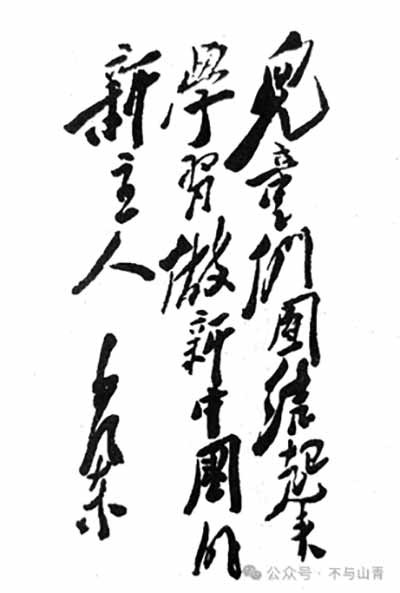 兒童們團結起來
學習做新中國的
新主人
毛澤東
公众号 · 不与山青